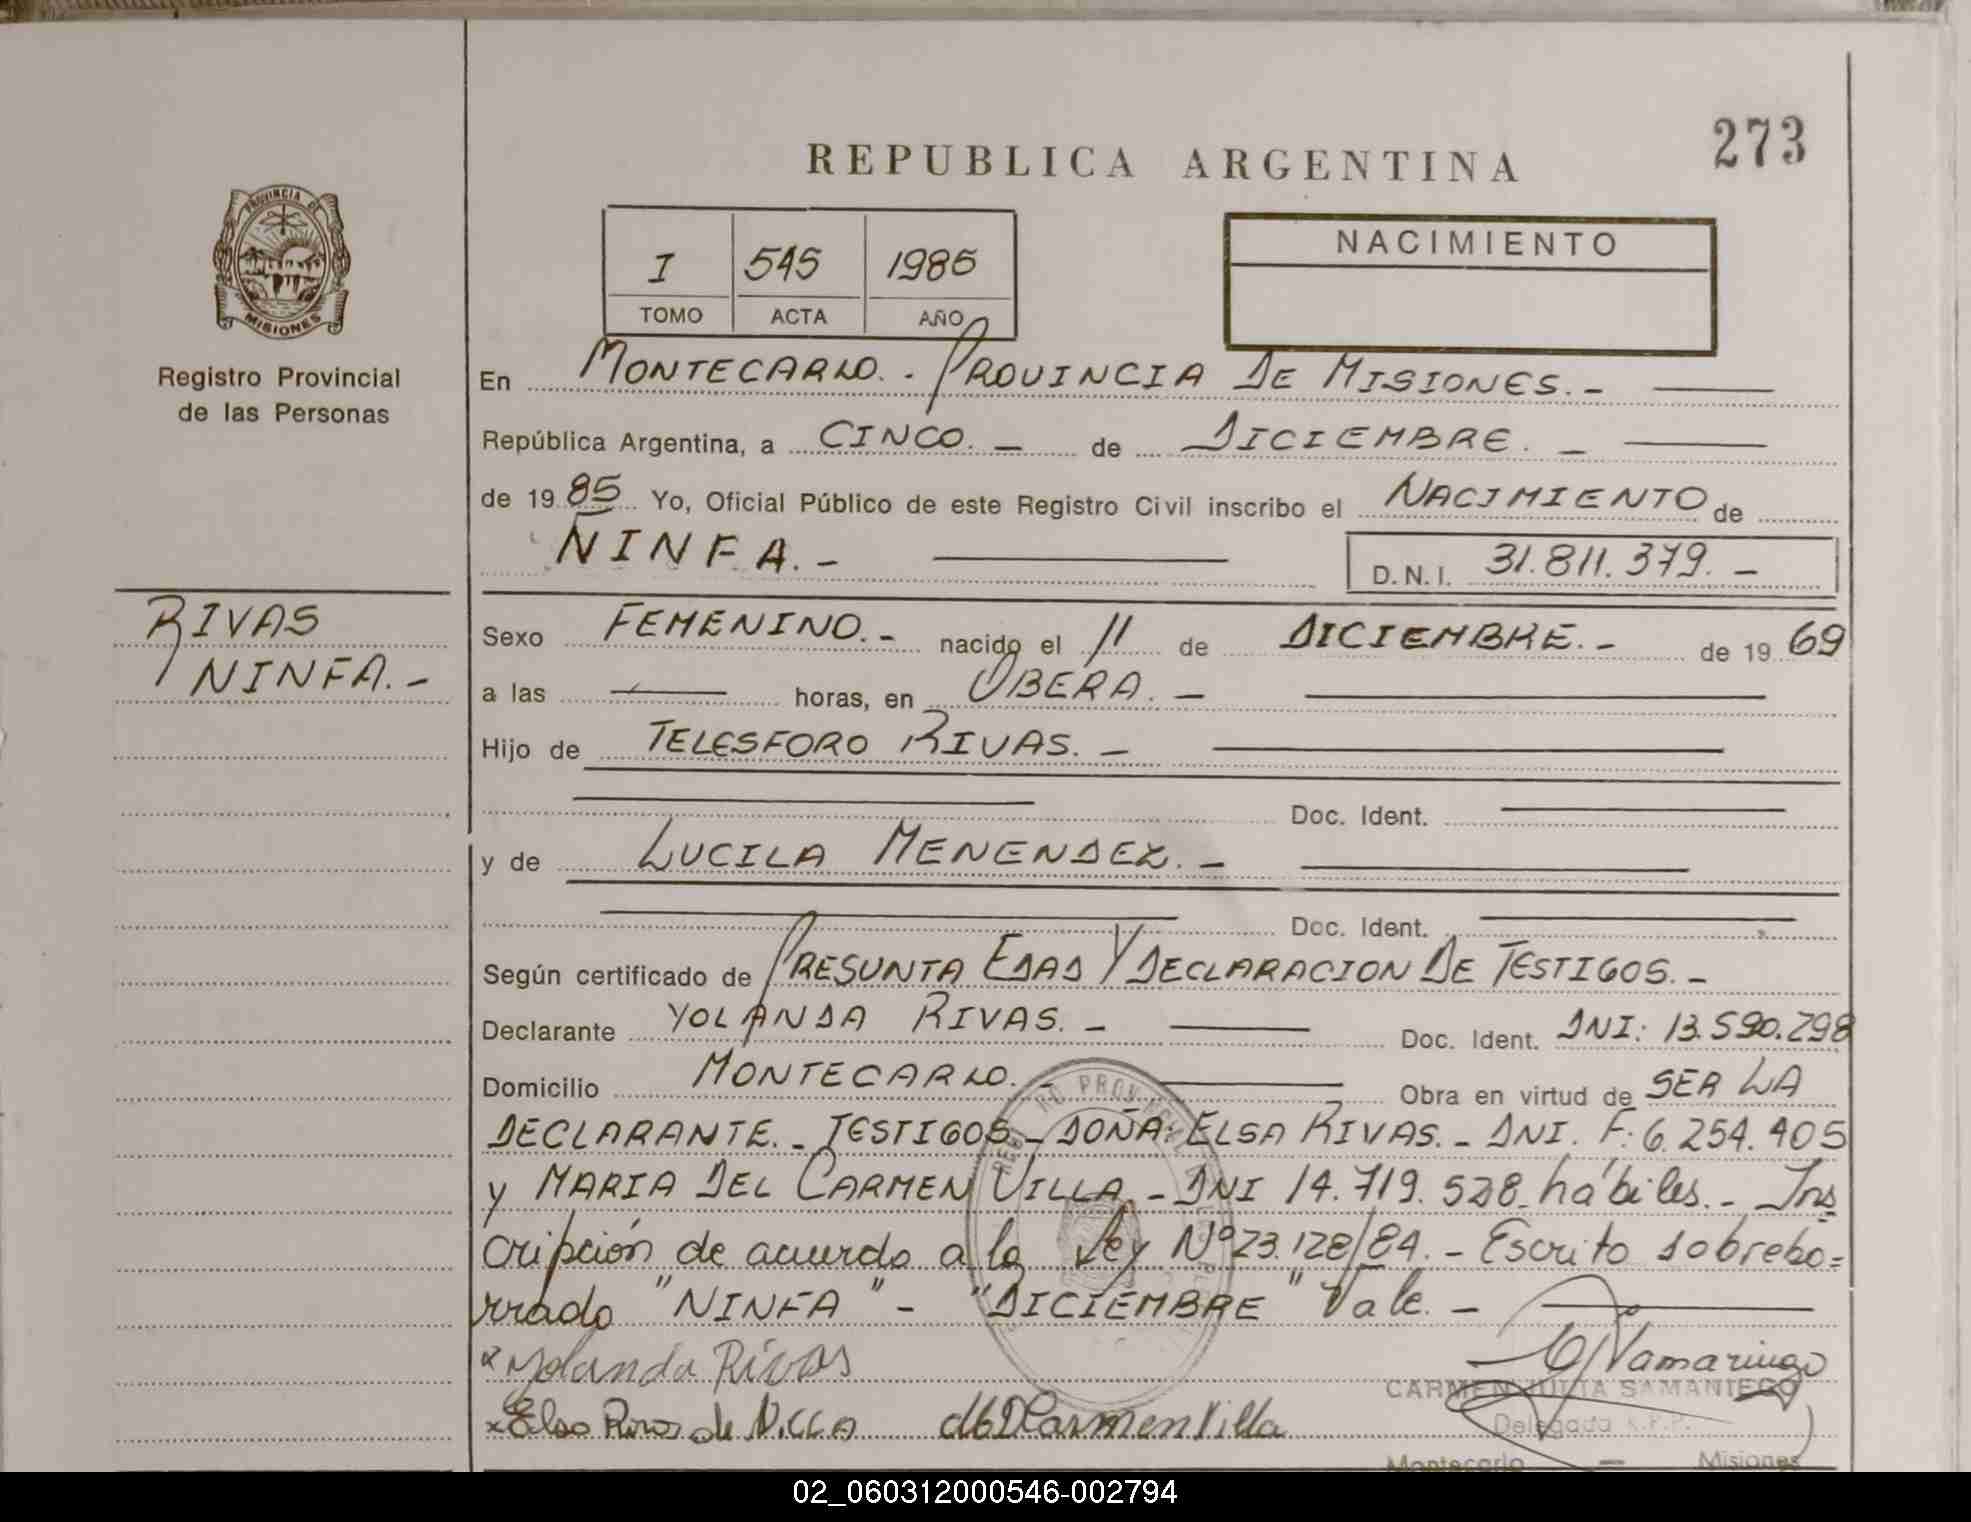 273
REPUBLICA ARGENTINA
PROVINCIA DE
MISIONES
Registro Provincial
de las Personas
I 545 1985
TOMO ACTA AÑO
NACIMIENTO
En MONTECARLO. - PROVINCIA DE MISIONES. -
República Argentina, a CINCO. - de DICIEMBRE. -
de 1985 Yo, Oficial Público de este Registro Civil inscribo el NACIMIENTO de
NINFA. -
D.N.I. 31.811.379. -
RIVAS
NINFA. -
Sexo FEMENINO. - nacido el 11 de DICIEMBRE. - de 1969
a las — horas, en OBERA. -
Hijo de TELESFORO RIVAS. -
Doc. Ident.
y de LUCILA MENENDEZ. -
Doc. Ident.
Según certificado de PRESUNTA EDAD Y DECLARACION DE TESTIGOS. -
Declarante YOLANDA RIVAS. - Doc. Ident. DNI: 13.590.298
Domicilio MONTECARLO. - Obra en virtud de SER LA
DECLARANTE. - TESTIGOS - DOÑA: ELSA RIVAS. - DNI. F: 6.254.405
y MARIA DEL CARMEN VILLA. - DNI 14.719.528 hábiles. - Ins
cripción de acuerdo a la Ley Nº 23.128/84. - Escrito sobrebo=
rrado "NINFA" - "DICIEMBRE" Vale. -
x Yolanda Rivas
CARMEN JULIA SAMANIEGO
x Elsa Rivas de VILLA MDCarmenVilla
Delegada R.P.P.
Montecarlo — Misiones
02_060312000546-002794